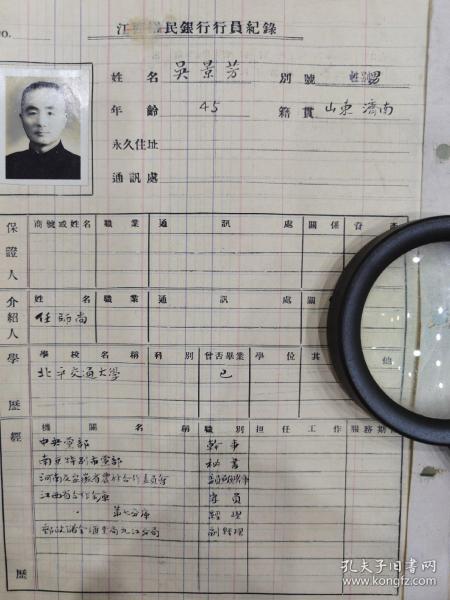 NO.
江 民銀行行員紀錄
姓名 吳景芳 別號
年齡 45 籍貫 山東 濟南
永久住址
通訊處
保證人 商號或姓名 職業 通訊處 關係 資產
介紹人 姓名 職業 通訊處 關
任師尚
學歷 學校名稱 科別 曾否畢業 學位 其他
北平交通大學 已
經歷 機關名稱 職別 担任工作 服務期
中央黨部 幹事
南京特別市黨部 秘書
江西省合作金庫 專員
〃 第七分庫 經理
郵政儲金匯業局九江分局 副經理
孔夫子旧书网
www.kongfz.com